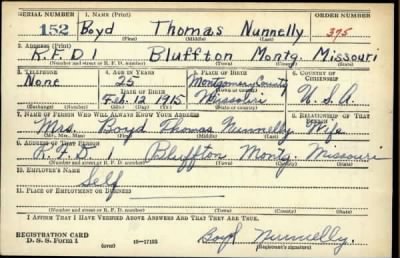 SERIAL NUMBER 1. NAME (Print) ORDER NUMBER
152 Boyd Thomas Nunnelly 395
(First) (Middle) (Last)
2. ADDRESS (Print)
R.F.D 1 Bluffton Montg. Missouri
(Number and street or R. F. D. number) (Town) (County) (State)
3. TELEPHONE 4. AGE IN YEARS 5. PLACE OF BIRTH 6. COUNTRY OF CITIZENSHIP
None 25 Montgomery County
DATE OF BIRTH (Town or county)
Feb. 12 1915 Missouri U.S.A.
(Exchange) (Number) (Mo.) (Day) (Yr.) (State or country)
7. NAME OF PERSON WHO WILL ALWAYS KNOW YOUR ADDRESS 8. RELATIONSHIP OF THAT PERSON
Mrs. Boyd Thomas Nunnelly Wife
(Mr., Mrs., Miss) (First) (Middle) (Last)
9. ADDRESS OF THAT PERSON
R.F.D. Bluffton Montg. Missouri
(Number and street or R. F. D. number) (Town) (County) (State)
10. EMPLOYER'S NAME
Self
11. PLACE OF EMPLOYMENT OR BUSINESS
(Number and street or R. F. D. number) (Town) (County) (State)
I AFFIRM THAT I HAVE VERIFIED ABOVE ANSWERS AND THAT THEY ARE TRUE.
REGISTRATION CARD
D. S. S. FORM 1 (over) 16-17105 Boyd Nunnelly.